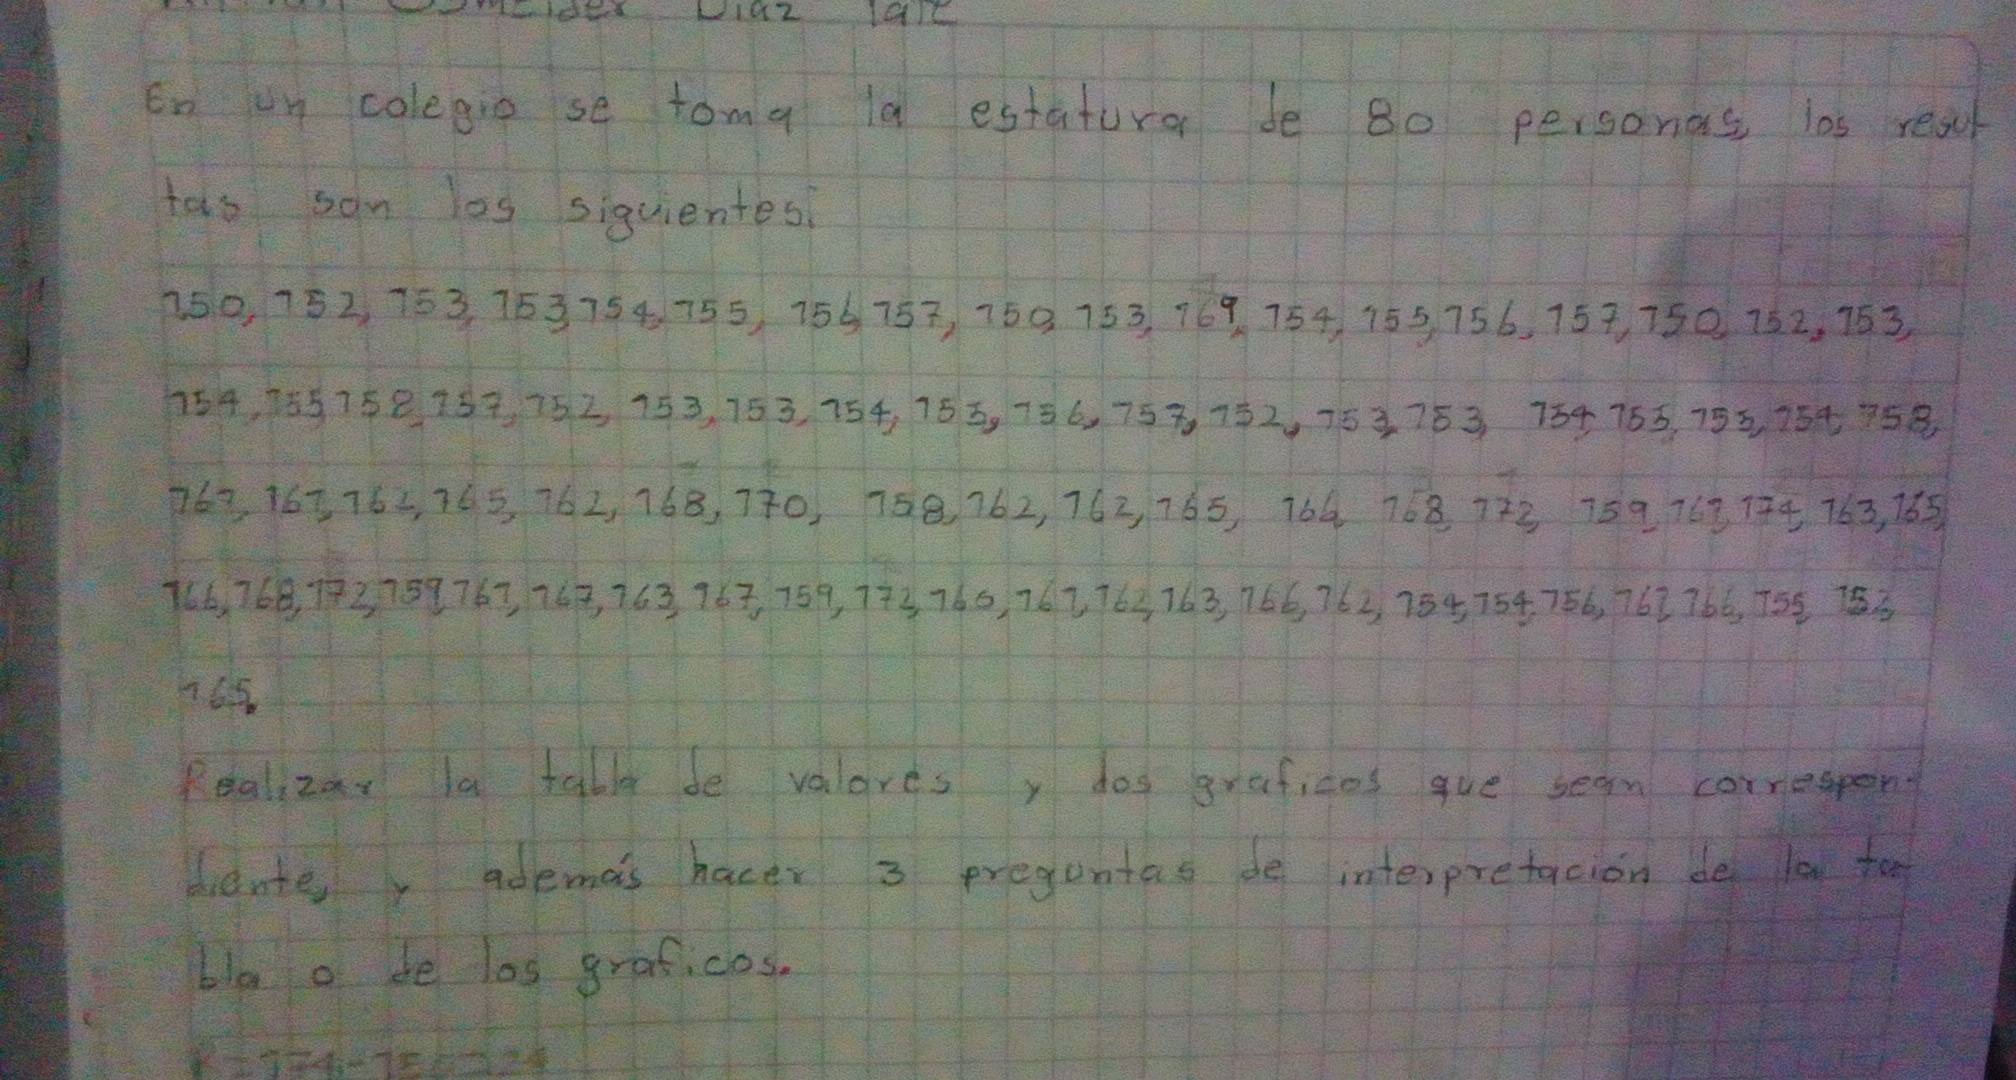 Diaz
En un colegio se toma la estatura de 80 personas, los resul
tas son los siguientes:
150, 152, 153, 153, 154, 155, 156, 157, 150, 153, 169, 154, 155, 156, 157, 150, 152, 153,
154, 155, 158, 157, 152, 153, 153, 154, 155, 156, 157, 152, 153, 153, 154, 155, 155, 154, 158,
167, 165, 162, 168, 170, 158, 162, 162, 165, 166, 168, 172, 159, 174, 163, 165,
166, 168, 172, 159, 163, 167, 159, 172, 163, 166, 162, 154, 154, 156, 166, 155,
165.
Realizar la tabla de valores y dos graficos que sean correspon-
diente, y además hacer 3 preguntas de interpretación de la ta
bla o de los graficos.